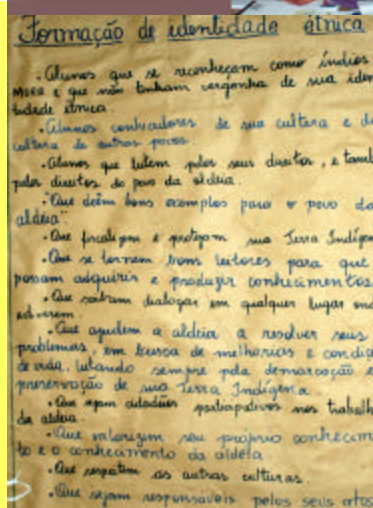 Formação de identidade étnica
. Alunos que se reconheçam como índios
MURA e que não tenham vergonha de sua iden
tidade étnica.
. Alunos conhecedores de sua cultura e da
cultura de outros povos.
. Alunos que lutem pelos seus direitos, e també
pelos direitos do povo da aldeia.
. Que deêm bons exemplos para o povo da
aldeia".
. Que fiscalizem e protejam sua Terra Indígen
. Que se tornem bons leitores para que
possam adquirir e produzir conhecimentos.
. Que saibam dialogar em qualquer lugar ond
estiverem
. Que ajudem a aldeia a resolver seus
problemas, em busca de melhorias e condiç
de vida, lutando sempre pela demarcação e
preservação de sua Terra Indígena.
. Que sejam cidadãos participativos nos trabalh
da aldeia.
. Que valorizem seu próprio conhecim
to e o conhecimento da aldeia
. Que respeitem as outras culturas.
. Que sejam responsáveis pelos seus atos